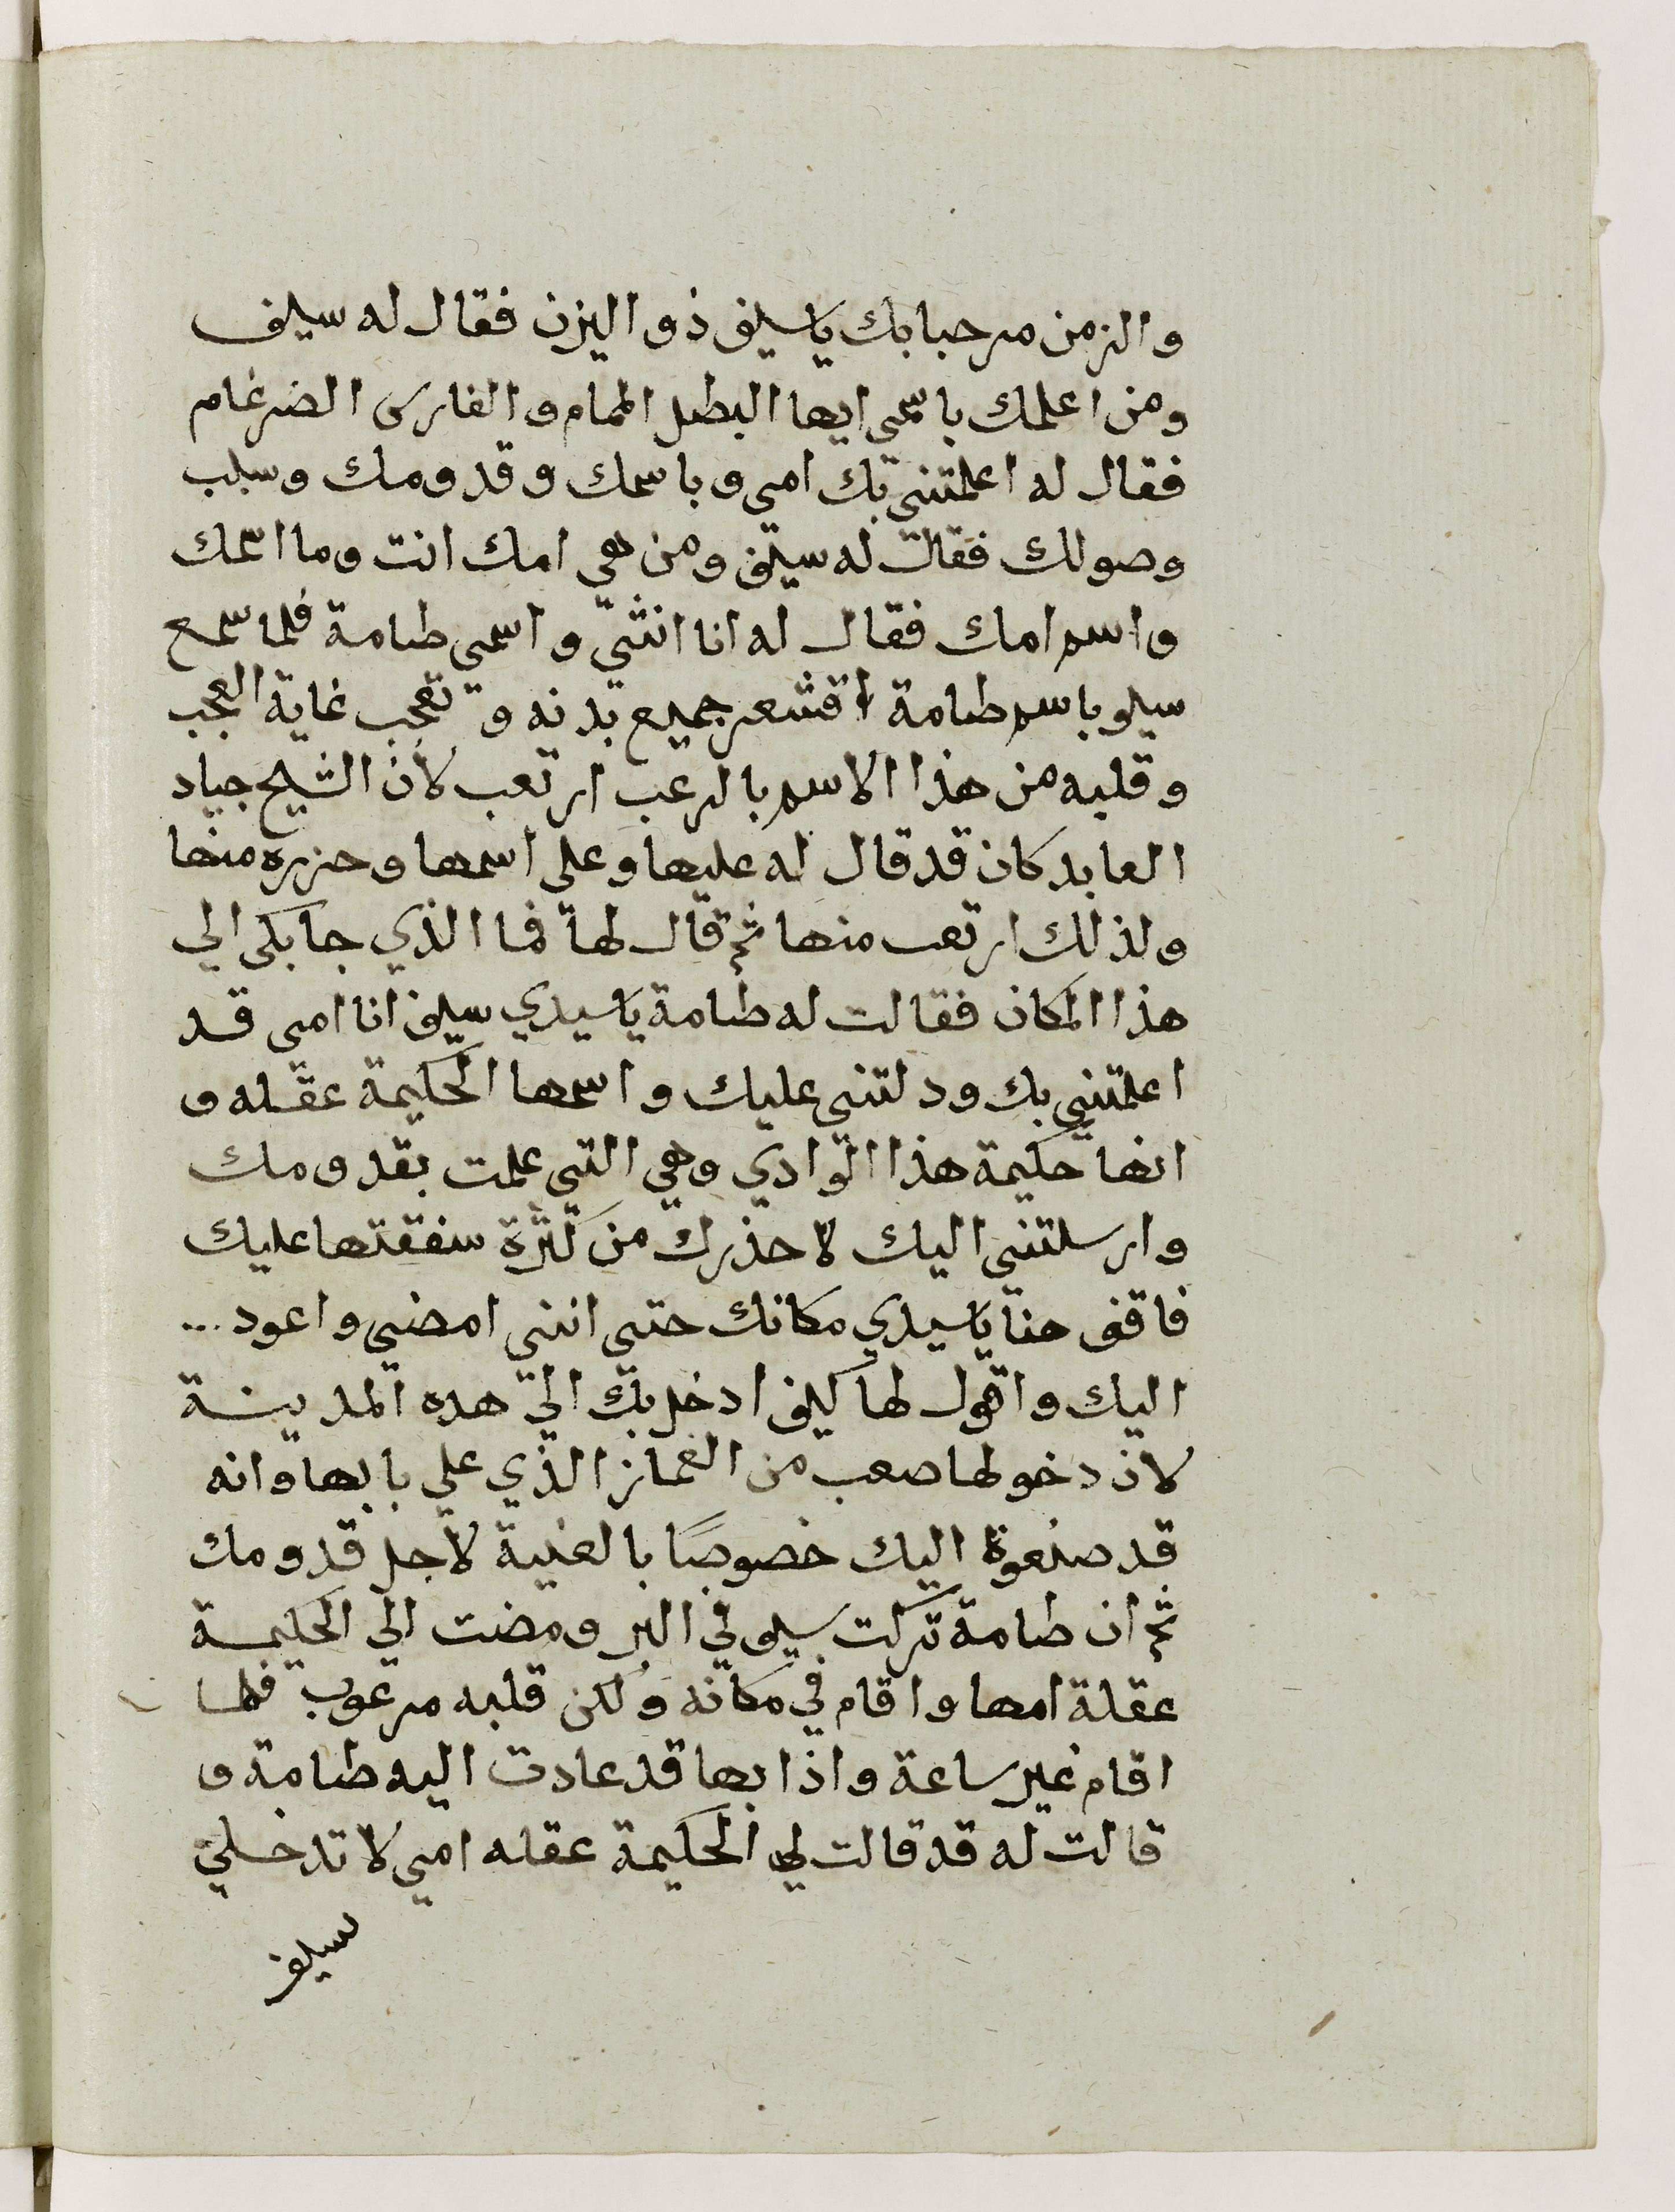 والزمن مرحبا بك ياسيف ذو اليزن فقال له سيف
ومن اعلمك باسمي ايها البطل الهمام والفارس الضرغام
فقال له اعلمتني بك امي وباسمك وقدومك وسبب
وصولك فقال له سيف ومن هي امك انت وما اسمك
واسم امك فقال له انا انثي واسمي طامة فلما سمع
سيف باسم طامة اقشعر جميع بدنه وتعجب غاية العجب
وقلبه من هذا الاسم بالرعب ارتعب لأن الشيخ جياد
العابد كان قد قال له عليها وعلى اسمها وحزره منها
ولذلك ارتعب منها ثم قال لها فما الذي جابكي الي
هذا المكان فقالت له طامة ياسيدي سيف انا امي قد
اعلمتني بك ودلتني عليك واسمها الحكيمة عقله و
انها حكيمة هذا الوادي وهي التي علمت بقدومك
وارسلتني اليك لاحذرك من كثرة سفقتها عليك
فاقف هنا ياسيدي مكانك حتى انني امضي واعود ...
اليك واقول لها كيف ادخل بك الي هده المدينة
لان دخولها صعب من الغماز الذي علي بابها وانه
قد صنعوة اليك خصوصًا بالعنية لاجل قدومك
ثم ان طامة تركت سيف في البر ومضت الي الحكيمة
عقلة امها واقام في مكانه ولكن قلبه مرعوب فلما
اقام غير ساعة واذا بها قد عادت اليه طامة و
قالت له قد قالت لي الحكيمة عقله امي لا تدخلي
سيف